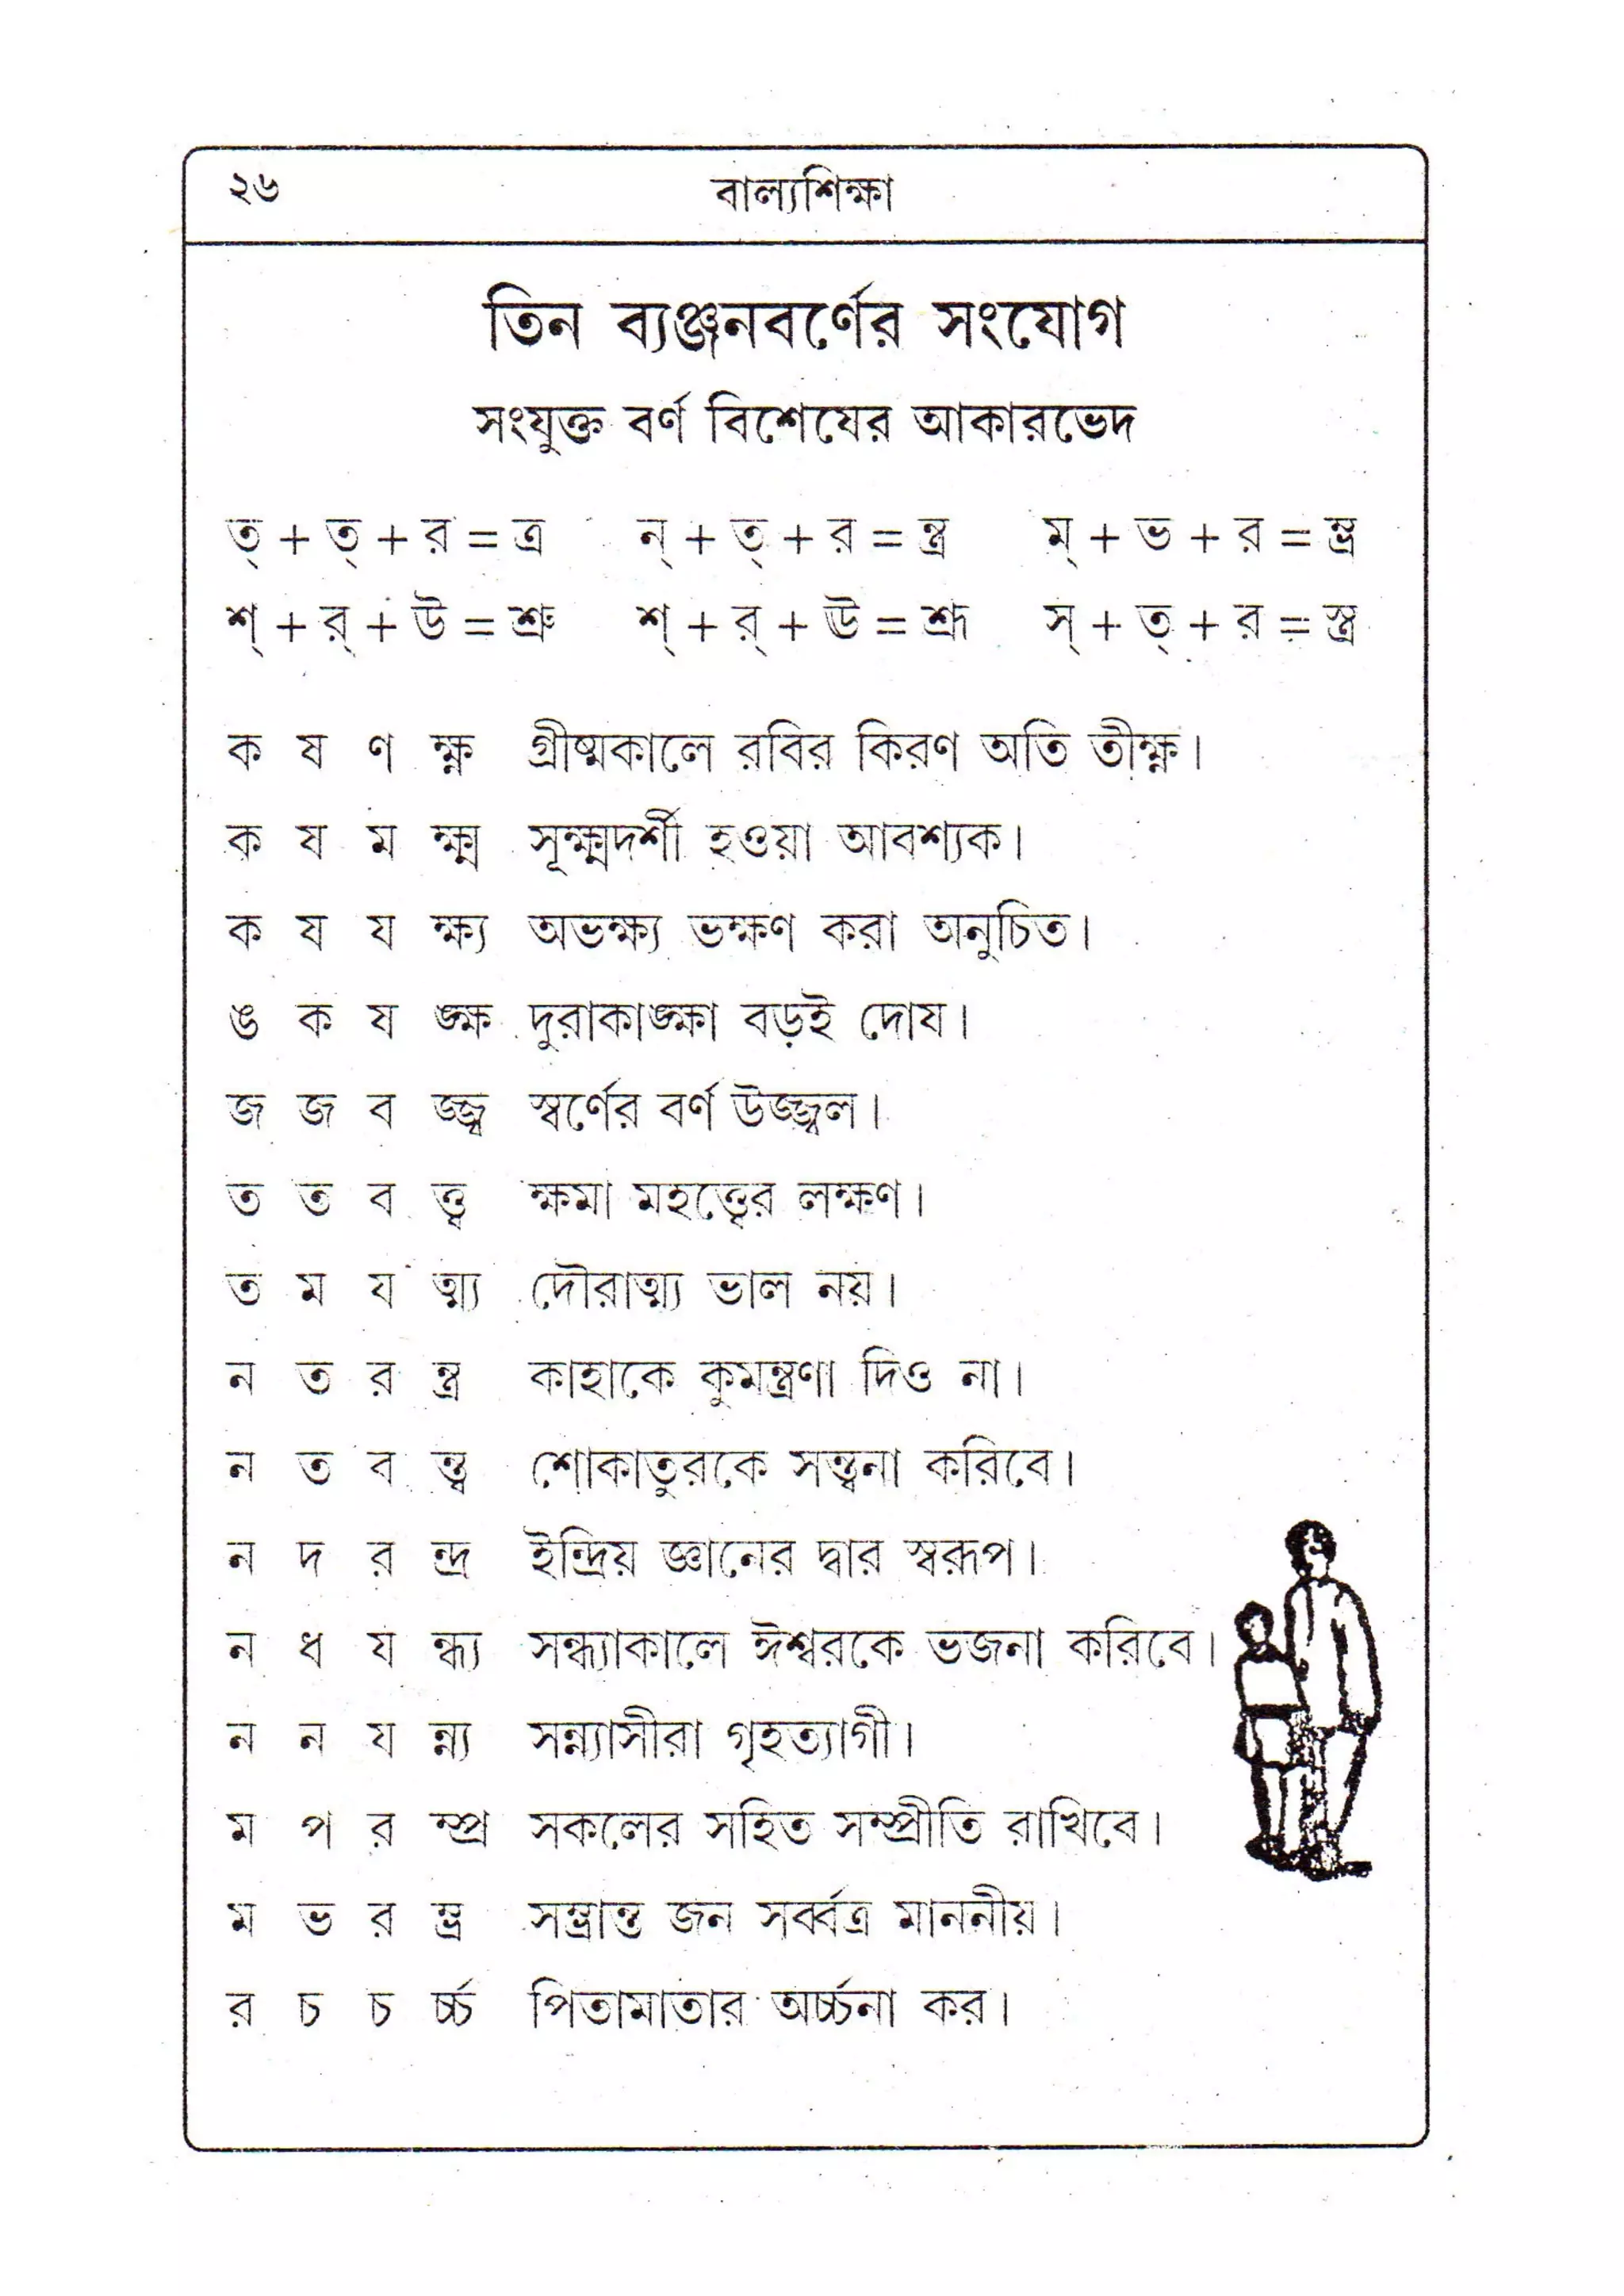 ২৬ বাল্যশিক্ষা
তিন ব্যঞ্জনবর্ণের সংযোগ
সংযুক্ত বর্ণ বিশেষের আকারভেদ
ত্ + ত্ + র = ত্র ন্ + ত্ + র = ন্ত্র ম্ + ভ + র = ম্ভ্র
শ্ + র্ + উ = শ্রু শ্ + র্ + ঊ = শ্রূ স্ + ত্ + র = স্ত্র
ক ষ ণ ক্ষ্ণ গ্রীষ্মকালে রবির কিরণ অতি তীক্ষ্ণ।
ক ষ ম ক্ষ্ম সূক্ষ্মদর্শী হওয়া আবশ্যক।
ক ষ য ক্ষ্য অভক্ষ্য ভক্ষণ করা অনুচিত।
ঙ ক ষ ঙ্ক্ষ দুরাকাঙ্ক্ষা বড়ই দোষ।
জ জ ব জ্জ্ব স্বর্ণের বর্ণ উজ্জ্বল।
ত ত ব ত্ত্ব ক্ষমা মহত্ত্বের লক্ষণ।
ত ম য ত্ম্য দৌরাত্ম্য ভাল নয়।
ন ত র ন্ত্র কাহাকে কুমন্ত্রণা দিও না।
ন ত ব ন্ত্ব শোকাতুরকে সন্ত্বনা করিবে।
ন দ র ন্দ্র ইন্দ্রিয় জ্ঞানের দ্বার স্বরূপ।
ন ধ য ন্ধ্য সন্ধ্যাকালে ঈশ্বরকে ভজনা করিবে।
ন ন য ন্ন্য সন্ন্যাসীরা গৃহত্যাগী।
ম প র ম্প্র সকলের সহিত সম্প্রীতি রাখিবে।
ম ভ র ম্ভ্র সম্ভ্রান্ত জন সর্ব্বত্র মাননীয়।
র চ চ র্চ্চ পিতামাতার অর্চ্চনা কর।